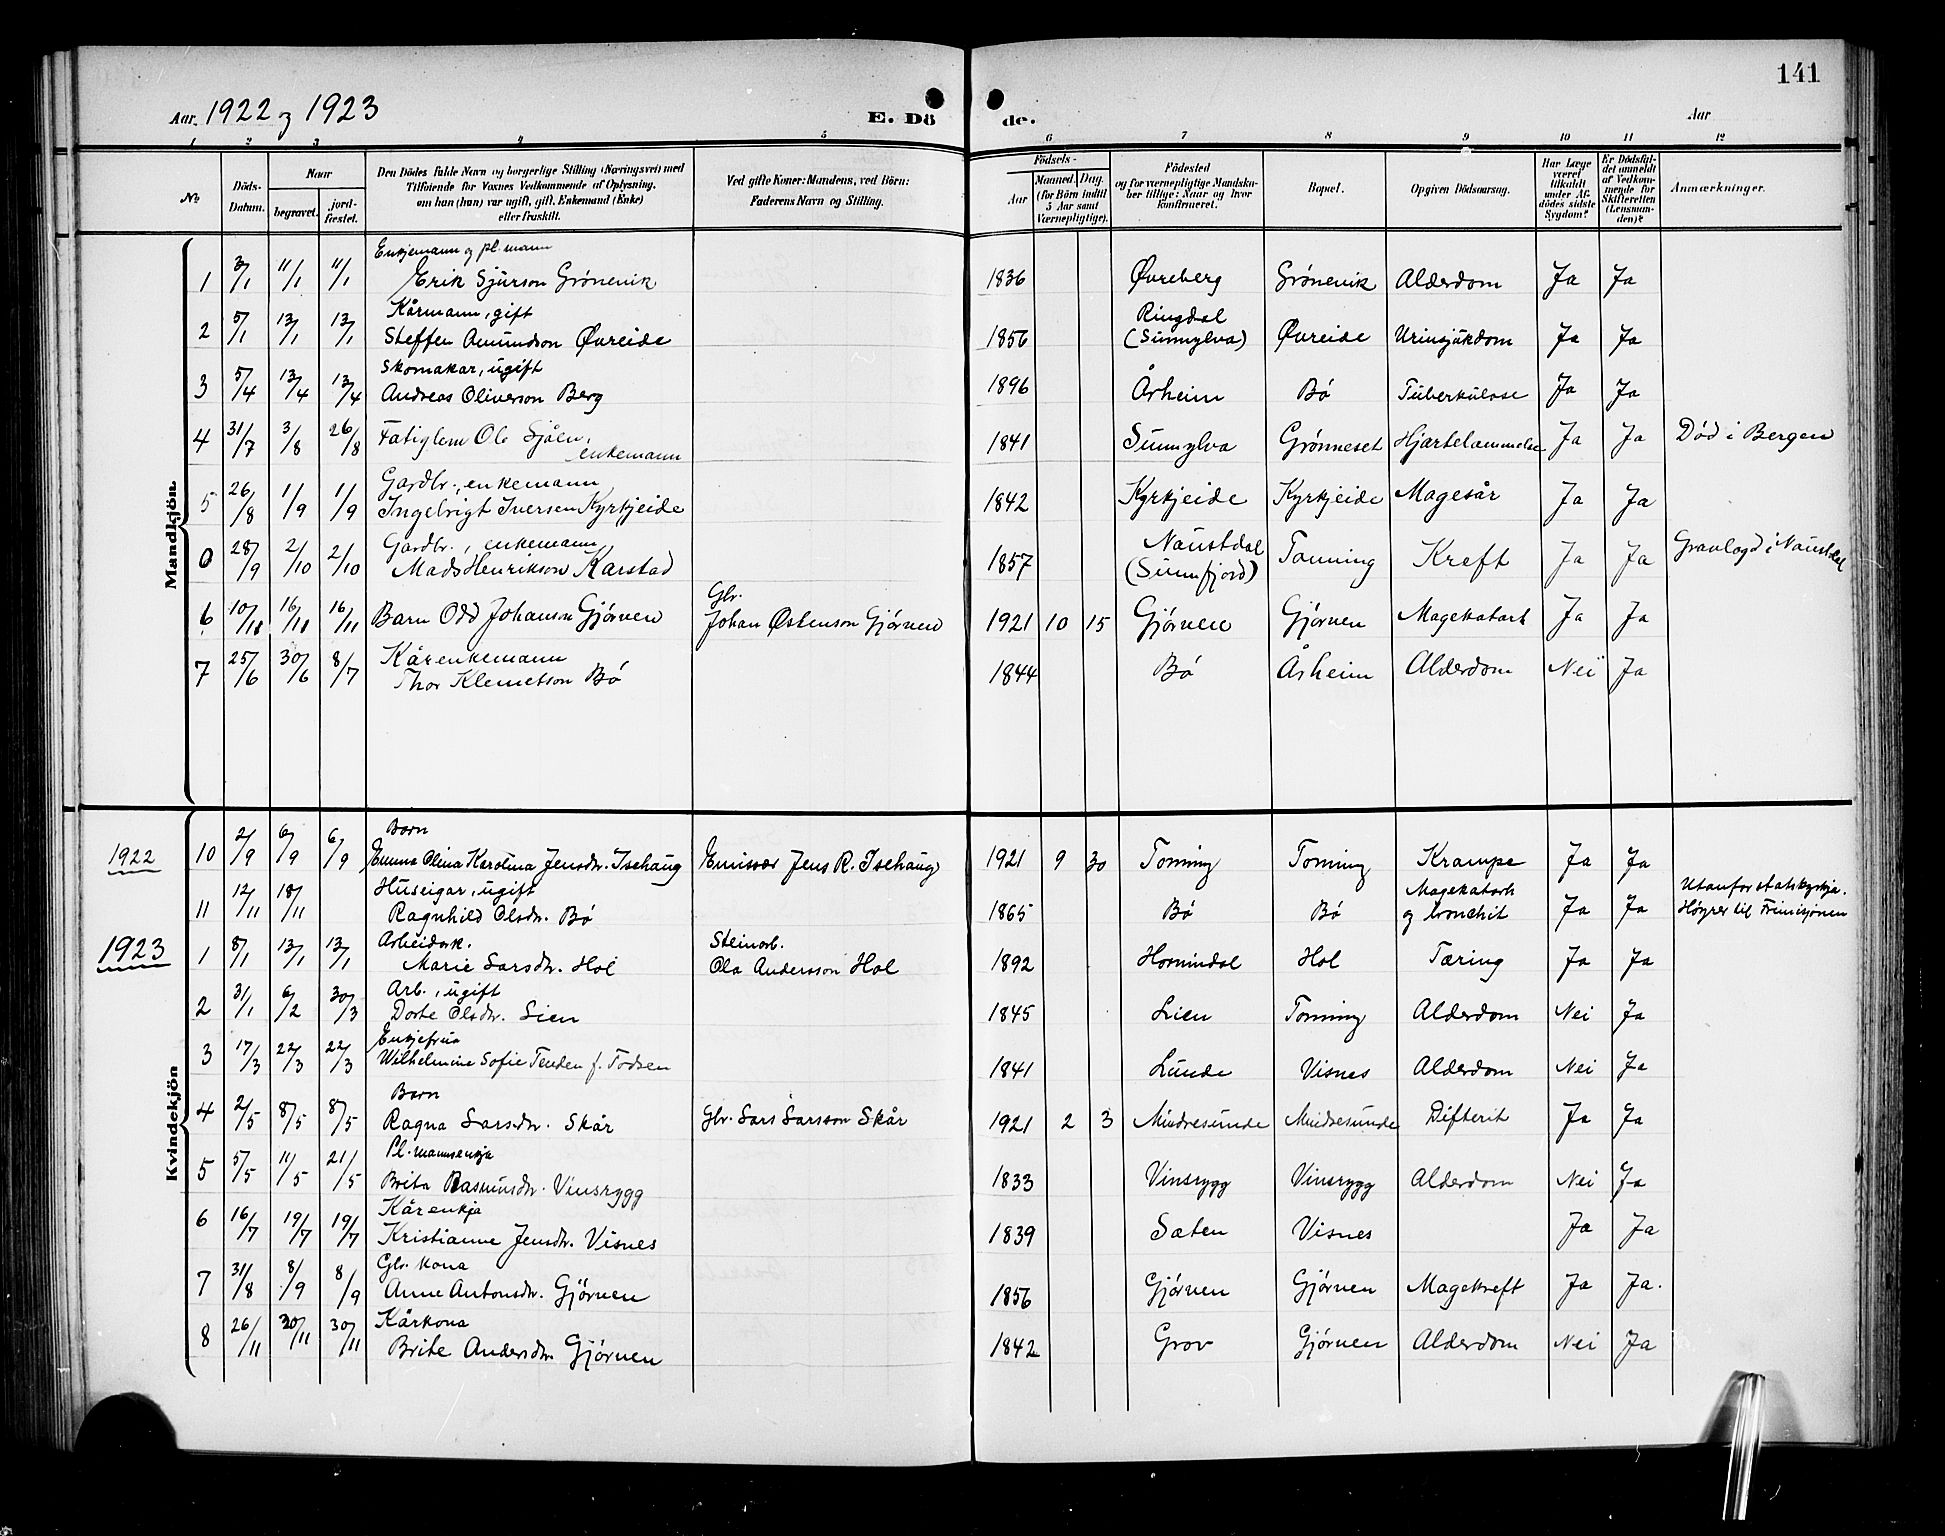 141
Aar. 1922 og 1923
E. Dö de.
Aar
1 2 3 4 5 6 7 8 9 10 11 12
No. Döds-Datum. Naar begravet. jordfæstet. Den Dödes fulde Navn og borgerlige Stilling (Næringsvei) med Tilföiende for Voxnes Vedkommende af Oplysning, om han (hun) var ugift, gift, Enkemand (Enke) eller fraskilt. Ved gifte Koner: Mandens, ved Börn: Faderens Navn og Stilling. Födsels- Aar Maaned. Dag. (for Börn indtil 5 Aar samt Værnepligtige). Födested og for værnepligtige Mandskaber tillige: Naar og hvor konfirmeret. Bopæl. Opgiven Dödsaarsag. Har Læge været tilkaldt under Afdödes sidste Sygdom? Er Dödsfaldet anmeldt af Vedkommende for Skifteretten (Lensmanden)? Anmærkninger.
Mandkjön
Enkjemann og pl.mann
1 3/1 11/1 11/1 Erik Sjurson Grónevik 1836 Øvreberg Grónevik Alderdom Ja Ja
Kårmann, gift Ringdal
2 5/1 13/1 13/1 Steffen Amundson Øvreide 1856 (Sunnylva) Øvreide Urinsjukdom Ja Ja
Skomakar, ugift
3 5/4 13/4 13/4 Andreas Oliverson Berg 1896 Årheim Bó Tuberkulose Ja Ja
4 31/7 3/8 26/8 Fatiglem Ole Sjåen, 1841 Sunnylva Grónneset Hjartelammelse Ja Ja Død i Bergen
enkemann
Gardbr., enkemann
5 26/8 1/9 1/9 Ingebrigt Iversen Kyrkjeide 1842 Kyrkjeide Kyrkjeide Magesår Ja Ja
Gardbr., enkemann Naustdal Gravlagd i Naustdal
0 28/9 2/10 2/10 Mads Henrikson Karstad 1857 (Sunnfjord) Tonning Kreft Ja Ja
Gbr.
6 10/11 16/11 16/11 Barn Odd Johanson Gjórven Johan Østenson Gjórven 1921 10 15 Gjórven Gjórven Magekatarh Ja Ja
Kårenkemann
7 25/6 30/6 8/7 Thor Klemetson Bó 1844 Bó Årheim Alderdom Nei Ja
Kvindekjön
1922
Barn
10 2/9 6/9 6/9 Emma Olina Karolina Jensdtr. Isehaug Emissær Jens R. Isehaug 1921 9 30 Tonning Tonning Krampe Ja Ja
Huseigar, ugift Magekatarh Utanfor statskyrkja.
11 12/11 18/11 Ragnhild Olsdtr. Bó 1865 Bó Bó og bronchit Ja Ja Høyrer til Frimisjonen
1923
Arbeidark. Steinarb.
1 8/1 13/1 13/1 Marie Larsdtr. Hol Ola Andersson Hol 1892 Hornindal Hol Tæring Ja Ja
Arb., ugift
2 31/1 6/2 30/3 Dorte Olsdtr. Lien 1845 Lien Tonning Alderdom Nei Ja
Enkjefrua
3 17/3 22/3 22/3 Wilhelmine Sofie Tenden f. Todsen 1841 Lunde Visnes Alderdom Nei Ja
Barn
4 2/5 8/5 8/5 Ragna Larsdtr. Skår Gbr. Lars Larsson Skår 1921 2 3 Mindresunde Mindresunde Difterit Ja Ja
Pl.mannsenkja
5 5/5 11/5 21/5 Brita Rasmusdtr. Vinsrygg 1833 Vinsrygg Vinsrygg Alderdom Nei Ja
Kårenkja
6 16/7 19/7 19/7 Kristianne Jensdtr. Visnes 1839 Sæten Visnes Ja Ja
Gbr. kona
7 31/8 8/9 8/9 Anne Antonsdtr. Gjörven 1856 Gjórven Gjórven Magekreft Ja Ja.
Kårkona
8 26/11 30/11 30/11 Brite Andersdtr. Gjórven 1842 Grov Gjórven Alderdom Nei Ja